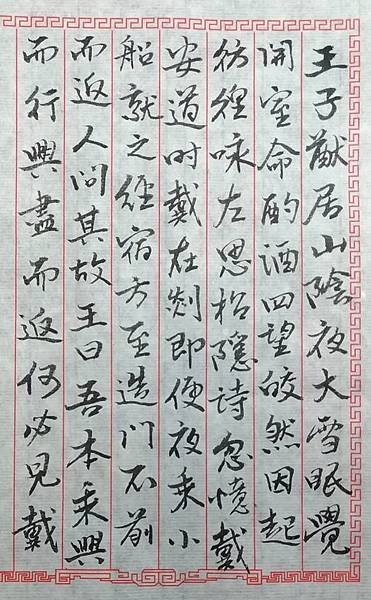 王子猷居山陰夜大雪眠覺
開室命酌酒四望皎然因起
彷徨咏左思招隱詩忽憶戴
安道时戴在剡即便夜乘小
船就之經宿方至造門不前
而返人问其故王曰吾本乘興
而行興盡而返何必見戴